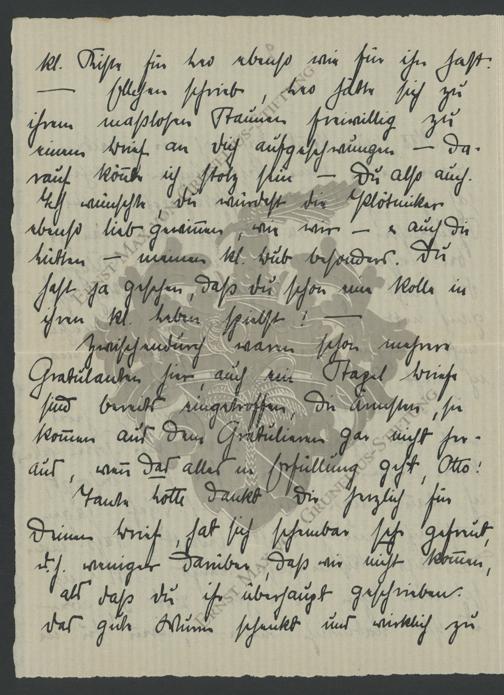 kl. Kiste für Leo ebenso wie für ihn hast.
— Ollychen schrieb, Leo hätte sich zu
ihrem maßlosen Staunen freiwillig zu
einem Brief an Dich aufgeschwungen — da-
rauf könne ich stolz sein — Du also auch.
Ich wünschte, du würdest die Plötniker
ebenso lieb gewinnen, wie wir — auch die
Lütten — meinen kl. Bub besonders. Du
hast ja gesehen, daß du schon eine Rolle in
ihren kl. Leben spielst! —
Zwischendurch waren schon mehrere
Gratulanten hier, auch ein Stapel Briefe
sind bereits eingetroffen, die Ärmsten, sie
kommen aus dem Gratulieren gar nicht her-
aus, wenn das alles in Erfüllung geht, Otto!
Tante Lotte dankt Dir herzlich für
Deinen Brief, hat sich scheinbar sehr gefreut,
d.h. weniger darüber, daß wir nicht kommen,
als daß du ihr überhaupt geschrieben.
Das gute Wurm schenkt uns wirklich zu
ERNST MAX VON GRUNELIUS-STIFTUNG
ERNST MAX VON GRUNELIUS-STIFTUNG